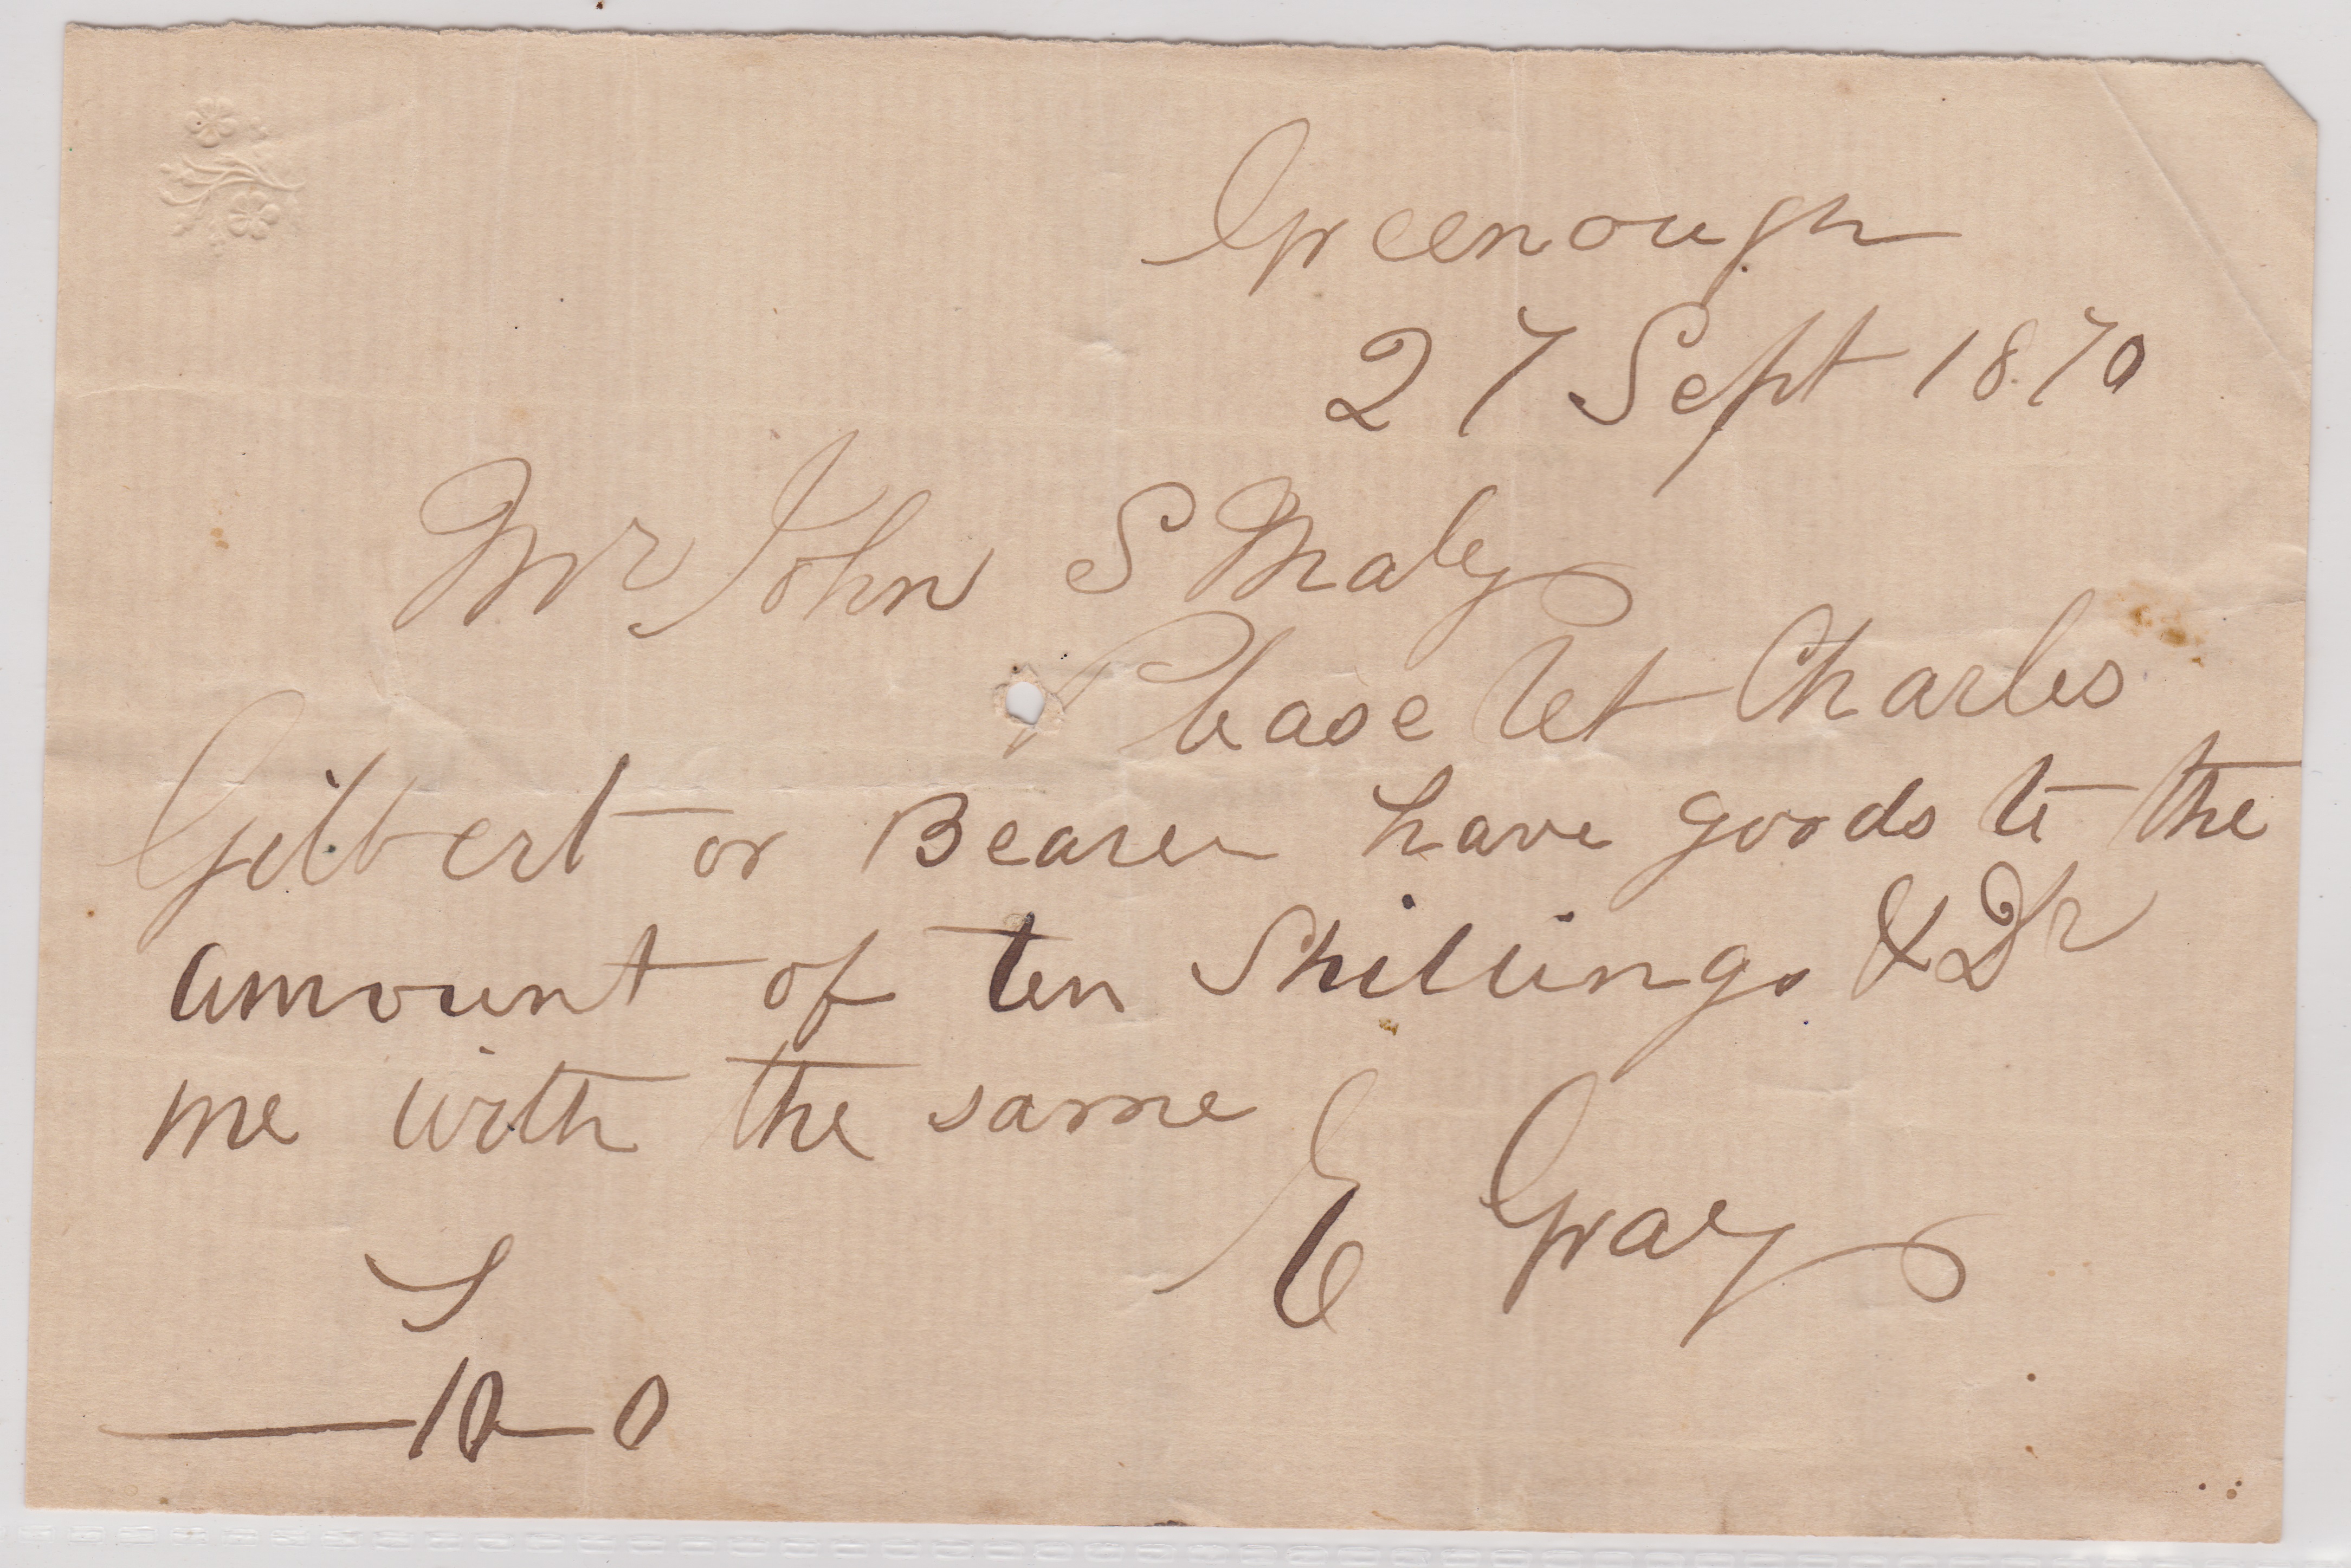 Greenough
27 Sept 1870
Mr John S Maley
Please let Charles
Gilbert or Bearer have goods to the
amount of ten Shillings & Dr
me with the same
E Gray
£
—10—0